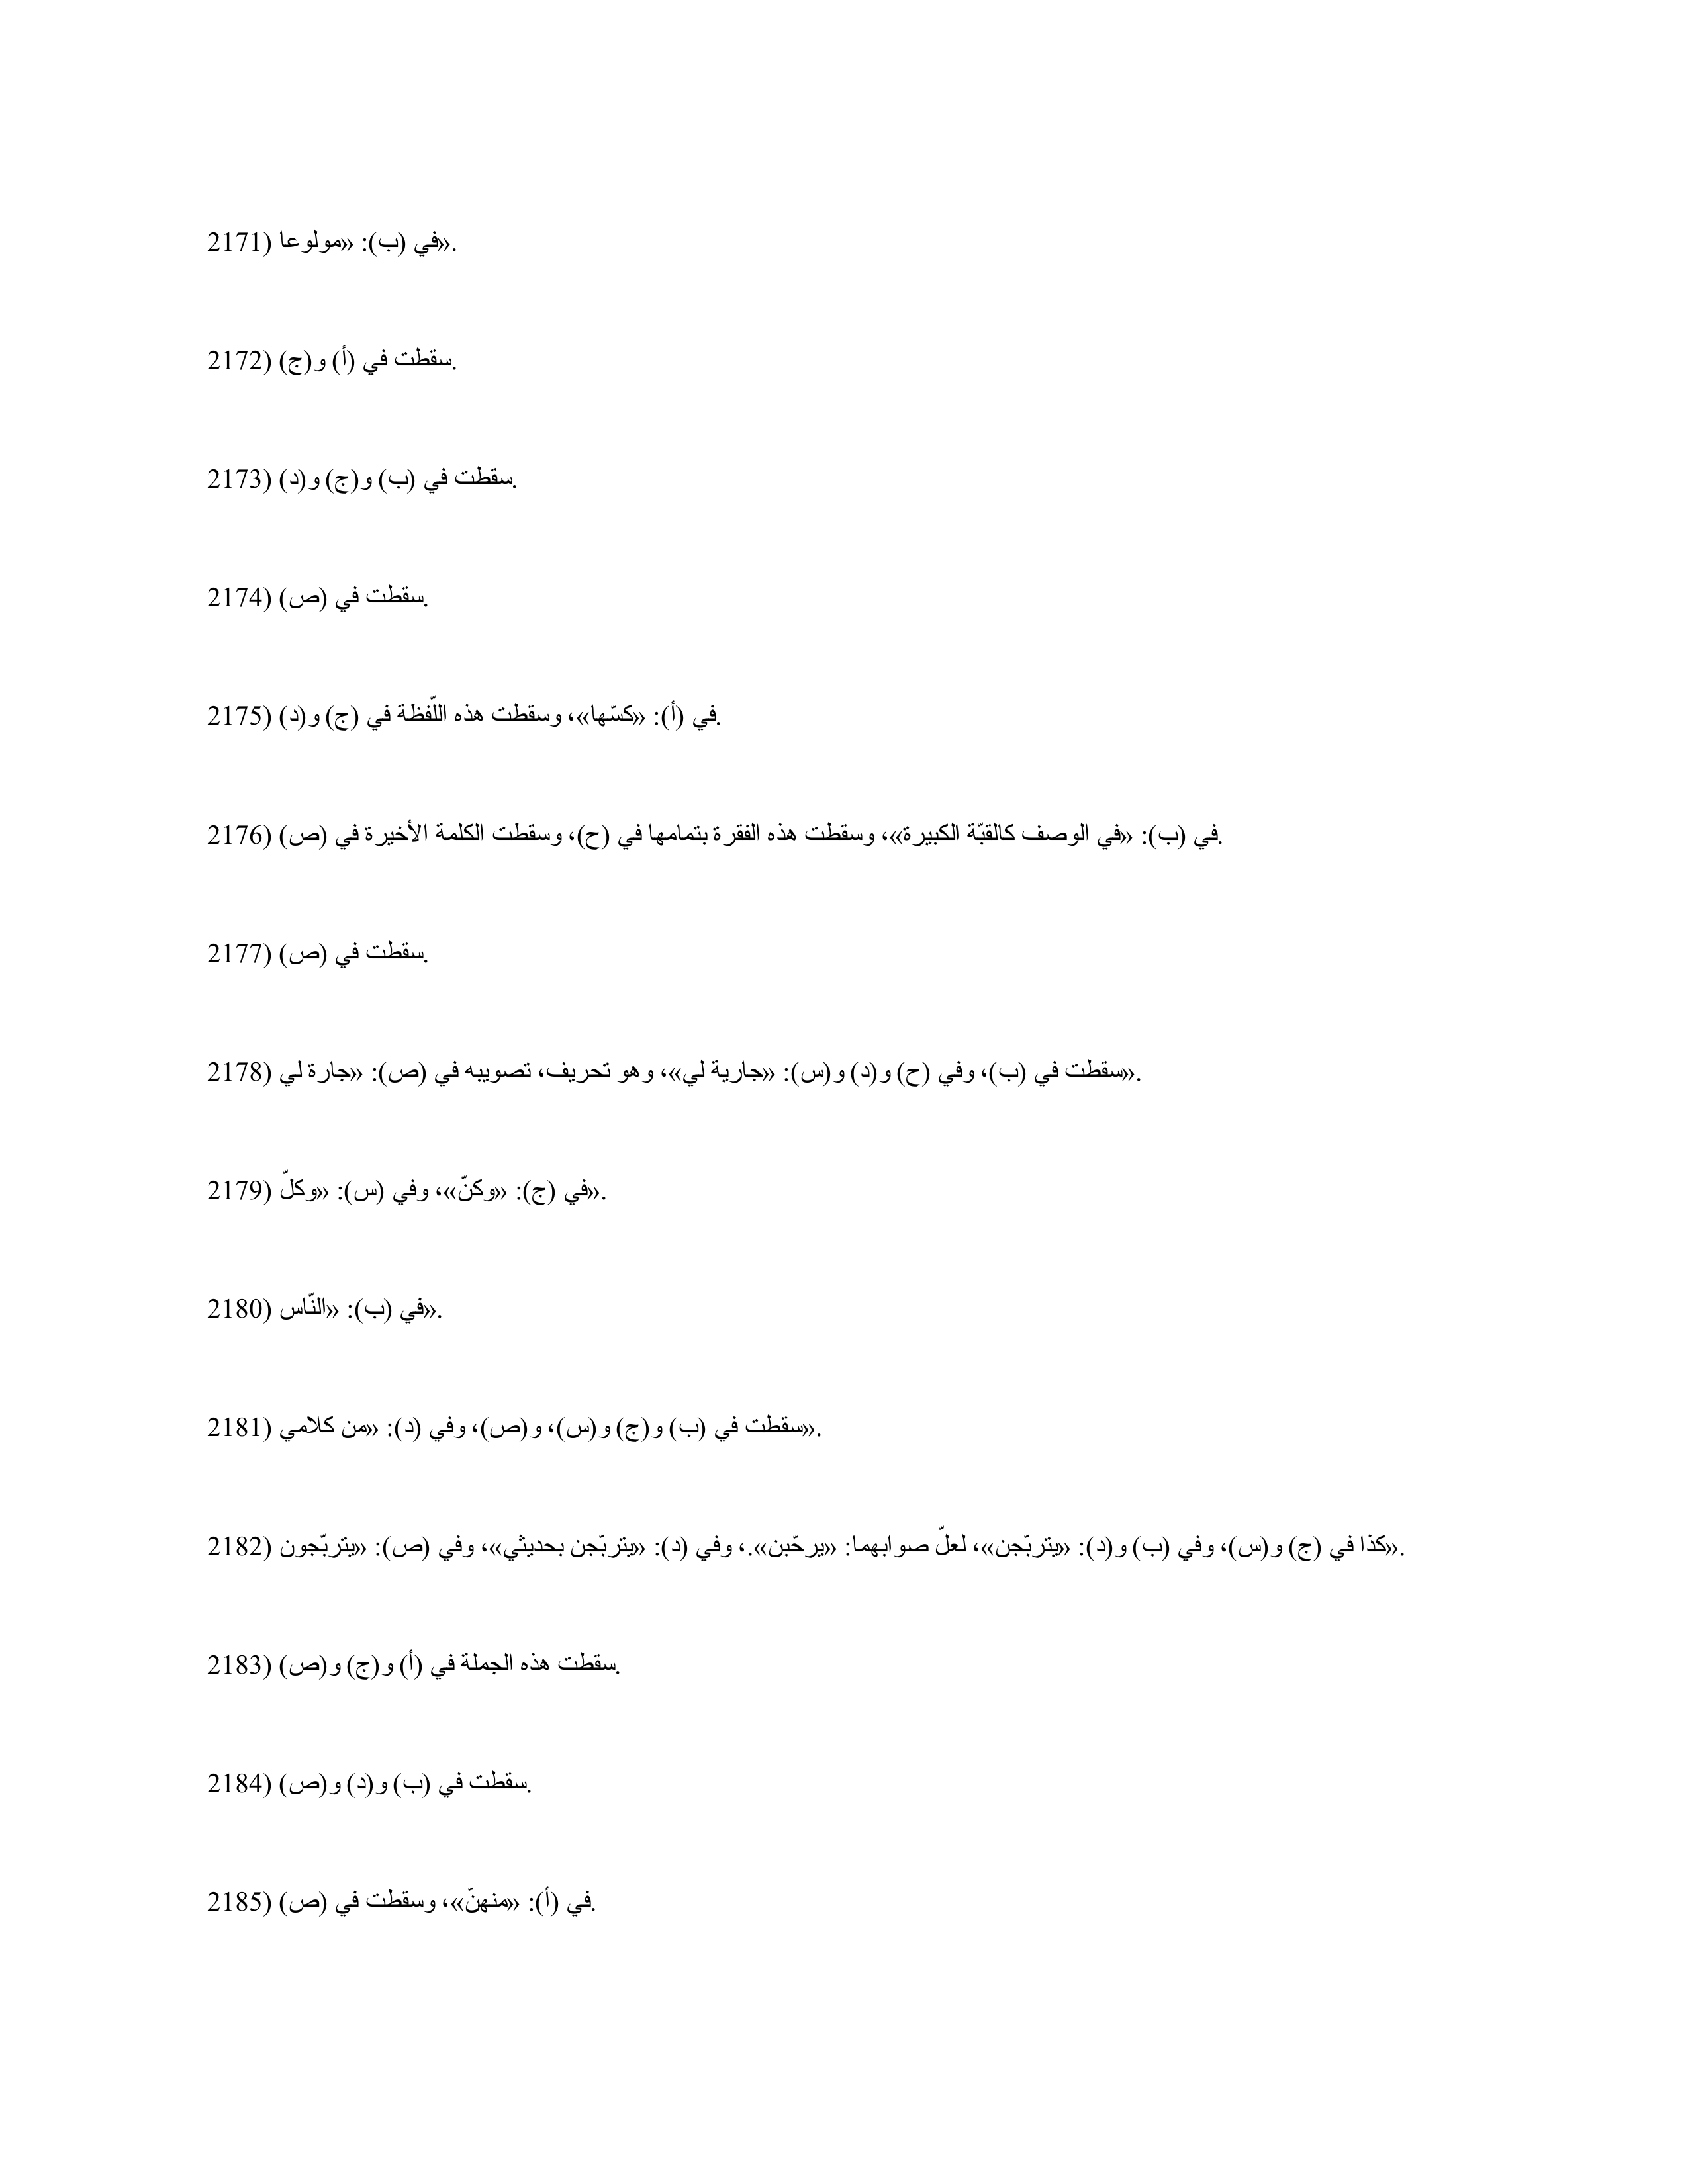 2171) في (ب): «مولوعا».
2172) سقطت في (أ) و(ج).
2173) سقطت في (ب) و(ج) و(د).
2174) سقطت في (ص).
2175) في (أ): «كسّها»، وسقطت هذه اللّفظة في (ج) و(د).
2176) في (ب): «في الوصف كالقبّة الكبيرة»، وسقطت هذه الفقرة بتمامها في (ح)، وسقطت الكلمة الأخيرة في (ص).
2177) سقطت في (ص).
2178) سقطت في (ب)، وفي (ح) و(د) و(س): «جارية لي»، وهو تحريف، تصويبه في (ص): «جارة لي».
2179) في (ج): «وكنّ»، وفي (س): «وكلّ».
2180) في (ب): «النّاس».
2181) سقطت في (ب) و(ج) و(س)، و(ص)، وفي (د): «من كلامي».
2182) كذا في (ج) و(س)، وفي (ب) و(د): «يتربّجن»، لعلّ صوابهما: «يرحّبن».، وفي (د): «يتربّجن بحديثي»، وفي (ص): «يتربّجون».
2183) سقطت هذه الجملة في (أ) و(ج) و(ص).
2184) سقطت في (ب) و(د) و(ص).
2185) في (أ): «منهنّ»، وسقطت في (ص).